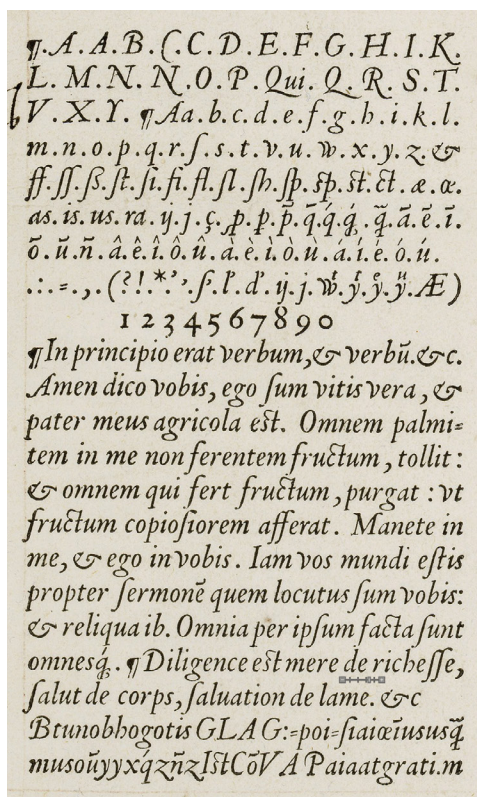 ¶. A. A. B. C. C. D. E. F. G. H. I. K.
L. M. N. N. O. P. Qui. Q. R. S. T.
V. X. Y. ¶ Aa. b. c. d. e. f. g. h. i. k. l.
m. n. o. p. q. r. ſ. s. t. v. u. w. x. y. z. &
ff. ſſ. ſs. ſt. ſi. fi. fl. ſl. ſh. ſp. sp. st. ct. æ. œ.
as. is. us. ra. ij. j. ç. ꝓ. ꝑ. p̄. q̃. q̄. q́. q̃. ã. ẽ. ĩ.
õ. ũ. ñ. â. ê. î. ô. û. à. è. ì. ò. ù. á. í. é. ó. ú.
1 2 3 4 5 6 7 8 9 0
¶ In principio erat verbum, & verbũ. &c.
Amen dico vobis, ego ſum vitis vera, &
pater meus agricola est. Omnem palmi⸗
tem in me non ferentem fructum, tollit:
& omnem qui fert fructum, purgat : vt
fructum copioſiorem afferat. Manete in
me, & ego in vobis. Iam vos mundi eſtis
propter ſermonẽ quem locutus ſum vobis:
& reliqua ib. Omnia per ipſum facta ſunt
omnesq́. ¶ Diligence est mere de richeſſe,
ſalut de corps, ſaluation de lame. &c
Btunobhogotis GLAG:⸗poi⸗ſiaiœĩususq̃
musoũyyxq́zñzIstCõVAPaiaatgrati.m